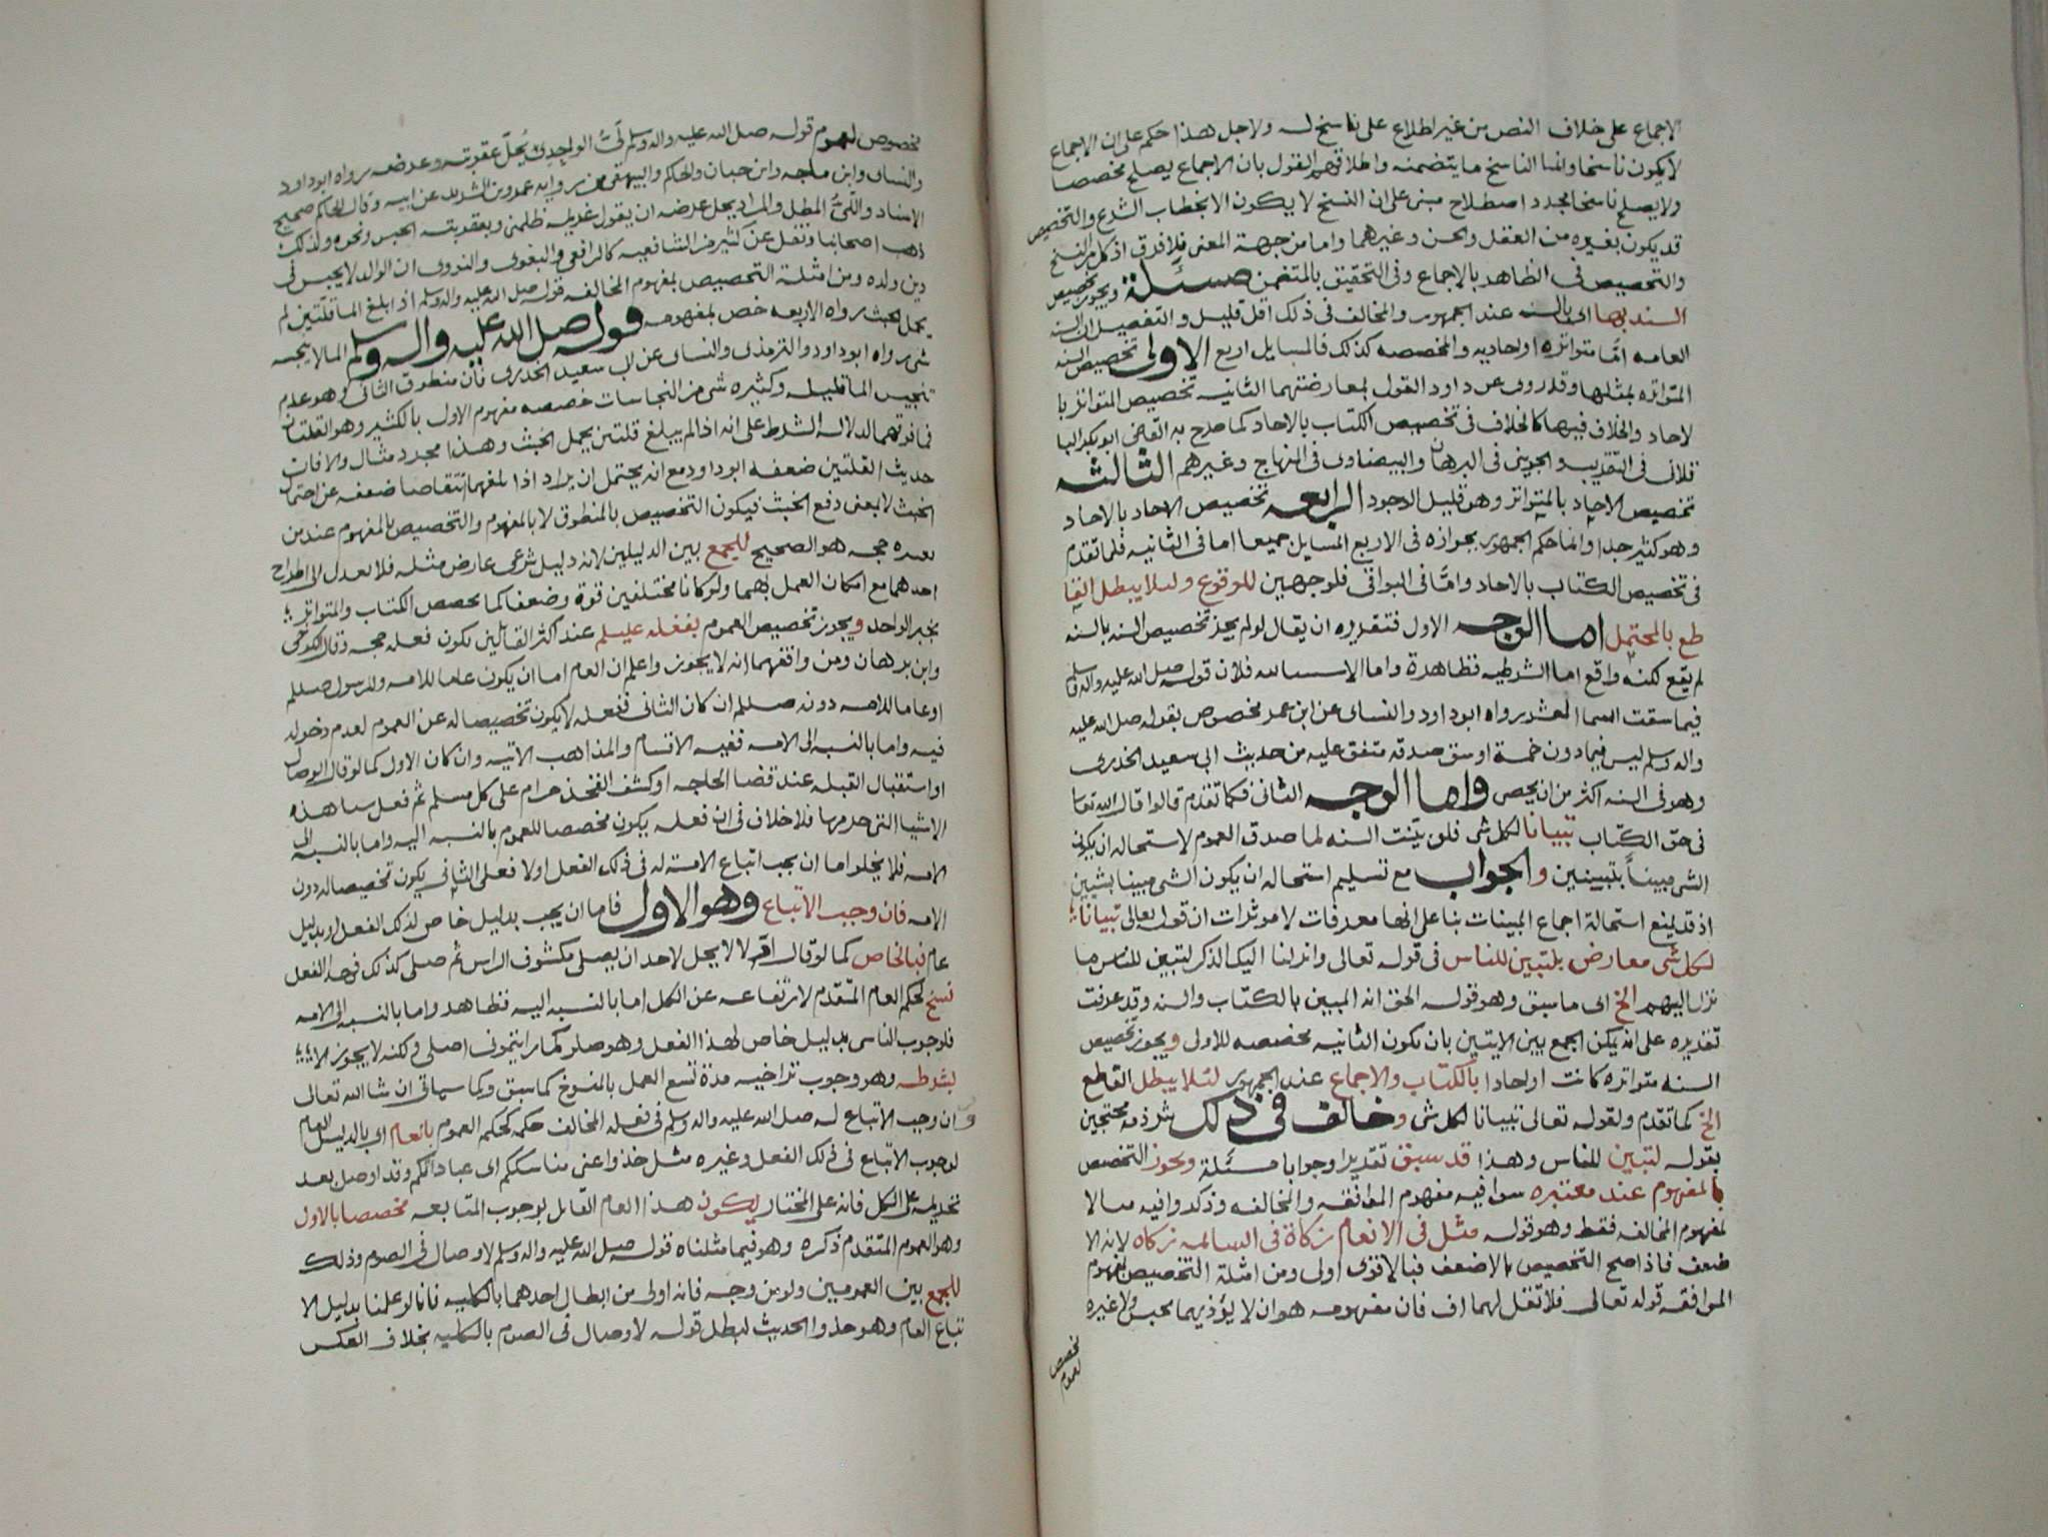 الاجماع على خلاف النص من غير اطلاع على ناسخ له ولاجل هذا حكم على ان الاجماع
لا يكون ناسخا وانما الناسخ ما يتضمنه واطلاقهم القول بان الاجماع يصلح مخصصا
ولا يصلح ناسخا مجرد اصطلاح مبنى على ان النسخ لا يكون الا بخطاب الشرع والتخصيص
قد يكون بغيره من العقل والحس وغيرهما واما من جهة المعنى فلا فرق اذ كل من النسخ
والتخصيص فى الظاهر بالاجماع وفى التحقيق بالمتضمن مسئلة ويجوز تخصيص
السنه بها اى بالسنه عند الجمهور والمخالف فى ذلك اقل قليل والتفصيل ان السنه
العامه اما متواتره او احاديه والمخصصه كذلك فالمسايل اربع الاولى تخصيص السنه
المتواتره بمثلها وقد روى عن داود القول بمعارضتهما الثانيه تخصيص المتواتر با
لاحاد والخلاف فيها كالخلاف فى تخصيص الكتاب بالاحاد كما صرح به القاضى ابو بكر البا
قلانى فى التقريب والجوينى فى البرهان والبيضاوى فى المنهاج وغيرهم الثالثه
تخصيص الاحاد بالمتواتر وهو قليل الوجود الرابعه تخصيص الاحاد بالاحاد
وهو كثير جدا وانما حكم الجمهور بجوازه فى الاربع المسايل جميعا اما فى الثانيه فلما تقدم
فى تخصيص الكتاب بالاحاد واما فى البواقى فلوجهين للوقوع ولئلا يبطل القا
طع بالمحتمل اما الوجه الاول فتقديره ان يقال لو لم يجز تخصيص السنه بالسنه
لم يقع لكنه واقع اما الشرطيه فظاهرة واما الاستثنائيه فلان قوله صلى الله عليه واله وسلم
فيما سقت السما العشر رواه ابو داود والنساى عن ابن عمر مخصوص بقوله صلى الله عليه
واله وسلم ليس فيما دون خمسة اوسق صدقه متفق عليه من حديث ابى سعيد الخدرى
وهو فى السنه اكثر من ان يحصى واما الوجه الثانى فكما تقدم قالوا قال الله تعا
فى حق الكتاب تبيانا لكل شى فلو بينت السنه لما صدق العموم لاستحاله ان يكون
الشى مبينا بتبيينين والجواب مع تسليم استحاله ان يكون الشى مبينا بشيين
اذ قد يمنع استحالة اجماع المبينات بنا على انها معرفات لا موثرات ان قوله تعالى تبيانا
لكل شى معارض بلتبين للناس فى قوله تعالى وانزلنا اليك الذكر لتبين للناس ما
نزل اليهم الخ اى ما سبق وهو قوله الحق انه المبين بالكتاب والسنه وقد عرفت
تقديره على انه يمكن الجمع بين الايتين بان تكون الثانيه مخصصه للاولى ويجوز تخصيص
السنه متواتره كانت او احادا بالكتاب والاجماع عند الجمهور لئلا يبطل القاطع
الخ كما تقدم ولقوله تعالى تبيانا لكل شى وخالف فى ذلك شرذمه محتجين
بقوله لتبين للناس وهذا قد سبق تقديرا وجوابا مسئلة ويجوز التخصيص
بالمفهوم عند معتبره سوا فيه مفهوم الموافقه والمخالفه وذكروا فيه مثالا
لمفهوم المخالفه فقط وهو قوله مثل فى الانعام زكاة فى السائمه زكاه لانه الا
ضعف فاذا صح التخصيص بالاضعف فبالاقوى اولى ومن امثلة التخصيص بمفهوم
الموافقه قوله تعالى فلا تقل لهما اف فان مفهومه هو ان لا يؤذيهما بحبس ولا غيره
مخصص
لعموم
مخصوص لعموم قوله صلى الله عليه واله وسلم لى الواجد يحل عقوبته وعرضه رواه ابو داود
والنساى وابن ماجه وابن حبان والحاكم والبيهقى من روايه عمرو بن الشريد عن ابيه وقال الحاكم صحيح
الاسناد واللى المطل والمراد يحل عرضه ان يقول غريمه ظلمنى وبعقوبته الحبس ونحوه ولذلك
ذهب اصحابنا ونقل عن كثير من الشافعيه كالرافعى والبغوى والنووى ان الوالد لا يحبس فى
دين ولده ومن امثلة التخصيص بمفهوم المخالفه قوله صلى الله عليه واله وسلم اذا بلغ الما قلتين لم
يحمل الخبث رواه الاربعه خص بمفهومه قوله صلى الله عليه واله وسلم الما لا ينجسه
شى رواه ابو داود والترمذى والنساى عن ابى سعيد الخدرى فان منطوق الثانى وهو عدم
تنجيس الما قليله وكثيره شى من النجاسات خصصه مفهوم الاول بالكثير وهو القلتان
فما فوقهما لدلالة الشرط على انه اذا لم يبلغ قلتين يحمل الخبث وهذا مجرد مثال والا فان
حديث القلتين ضعفه ابو داود مع انه يحتمل ان يراد اذا بلغهما انتقاصا ضعفه عن احتمال
الخبث لا بمعنى دفع الخبث فيكون التخصيص بالمنطوق لا بالمفهوم والتخصيص بالمفهوم عند من
يعده حجه هو الصحيح للجمع بين الدليلين لانه دليل شرعى عارض مثله فلا يعدل الى اطراح
احدهما مع امكان العمل بهما ولو كانا مختلفين قوة وضعفا كما يخصص الكتاب والمتواتر
بخبر الواحد ويجوز تخصيص العموم بفعله عليلم عند اكثر القائلين بكون فعله حجه وقال الكرخى
وابن برهان ومن وافقهما انه لا يجوز واعلم ان العام اما ان يكون عاما للامه وللرسول صللم
او عاما للامه دونه صللم ان كان الثانى ففعله لا يكون تخصيصا له عن العموم لعدم دخوله
فيه واما بالنسبه الى الامه ففيه الاقسام والمذاهب الاتيه وان كان الاول كما لو قال الوصال
او استقبال القبله عند قضا الحاجه او كشف الفخذ حرام على كل مسلم ثم فعل هذه
الاشيا التى حرمها فلا خلاف فى ان فعله يكون مخصصا للعموم بالنسبه اليه واما بالنسبه الى
الامه فلا يخلو اما ان يجب اتباع الامة له فى ذلك الفعل اولا فعلى الثانى يكون تخصيصا له دون
الامه فان وجب الاتباع وهو الاول فاما ان يجب بدليل خاص لذلك الفعل او بدليل
عام فبالخاص كما لو قال اولا لا يحل لاحد ان يصلى مكشوف الراس ثم صلى كذلك فهذا الفعل
نسخ لحكم العام المتقدم لارتفاعه عن الكل اما بالنسبه اليه فظاهر واما بالنسبه الى الامه
فلوجوب التاسى بدليل خاص لهذا الفعل وهو صلوا كما رايتمونى اصلى ولكنه لا يجوز الا
بشرطه وهو وجوب تراخيه مدة تسع العمل بالمنسوخ كما سبق وكما سياتى ان شا الله تعالى
وان وجب الاتباع له صلى الله عليه واله وسلم فى فعله المخالف حكمه لحكم العموم بالعام اى بالدليل العام
لوجوب الاتباع فى ذلك الفعل وغيره مثل خذوا عنى مناسككم اى عباداتكم وقد اوصل بعد
تحريمه على الكل فانه على المختار يكون هذا العام القائل بوجوب المتابعه مخصصا بالاول
وهو العموم المتقدم ذكره وهو فيما مثلناه قوله صلى الله عليه واله وسلم لا وصال فى الصوم وذلك
للجمع بين العمومين ولو من وجه فانه اولى من ابطال احدهما بالكليه فانا لو علمنا بدليل الا
تباع العام وهو خذوا الحديث لبطل قوله لا وصال فى الصوم بالكليه بخلاف العكس